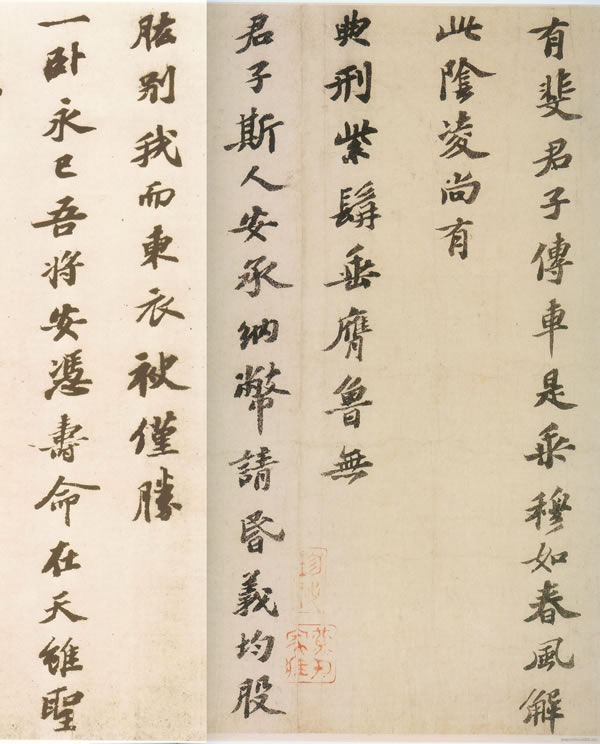 有斐君子傳車是乘穆如春風解
此陰凌尚有
典刑紫髯垂膺魯無
君子斯人安承納幣請昏義均股
肱別我而東衣袂僅勝
一卧永已吾將安憑壽命在天雖聖